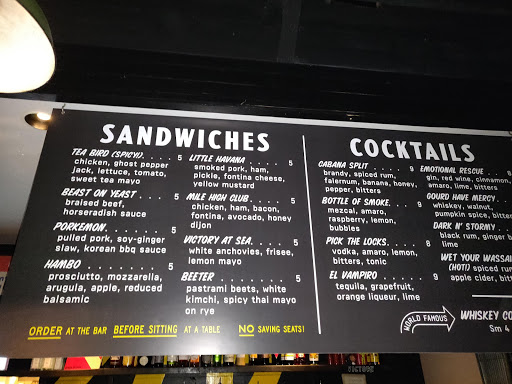 SANDWICHES
TEA BIRD (SPICY). . . . 5
chicken, ghost pepper
jack, lettuce, tomato,
sweet tea mayo
BEAST ON YEAST . . . . 5
braised beef,
horseradish sauce
PORKEMON. . . . . . . 5
pulled pork, soy-ginger
slaw, korean bbq sauce
HAMBO . . . . . . . . . 5
prosciutto, mozzarella,
arugula, apple, reduced
balsamic
LITTLE HAVANA . . . . . 5
smoked pork, ham,
pickle, fontina cheese,
yellow mustard
MILE HIGH CLUB . . . . 5
chicken, ham, bacon,
fontina, avocado, honey
dijon
VICTORY AT SEA. . . . . 5
white anchovies, frisee,
lemon mayo
BEETER . . . . . . . . 5
pastrami beets, white
kimchi, spicy thai mayo
on rye
ORDER AT THE BAR BEFORE SITTING AT A TABLE NO SAVING SEATS!
COCKTAILS
CABANA SPLIT . . . . 9
brandy, spiced rum,
falernum, banana, honey,
pepper, bitters
BOTTLE OF SMOKE. . . 9
mezcal, amaro,
raspberry, lemon,
bubbles
PICK THE LOCKS. . . . 8
vodka, amaro, lemon,
bitters, tonic
EL VAMPIRO . . . . . 9
tequila, grapefruit,
orange liqueur, lime
EMOTIONAL RESCUE . .
gin, red wine, cinnamon,
amaro, lime, bitters
GOURD HAVE MERCY .
whiskey, walnut,
pumpkin spice, bitters
DARK N' STORMY . .
black rum, ginger b
lime
WET YOUR WASSAI
(HOT!) spiced rum
apple cider, bitt
WORLD FAMOUS
WHISKEY CO
Sm 4